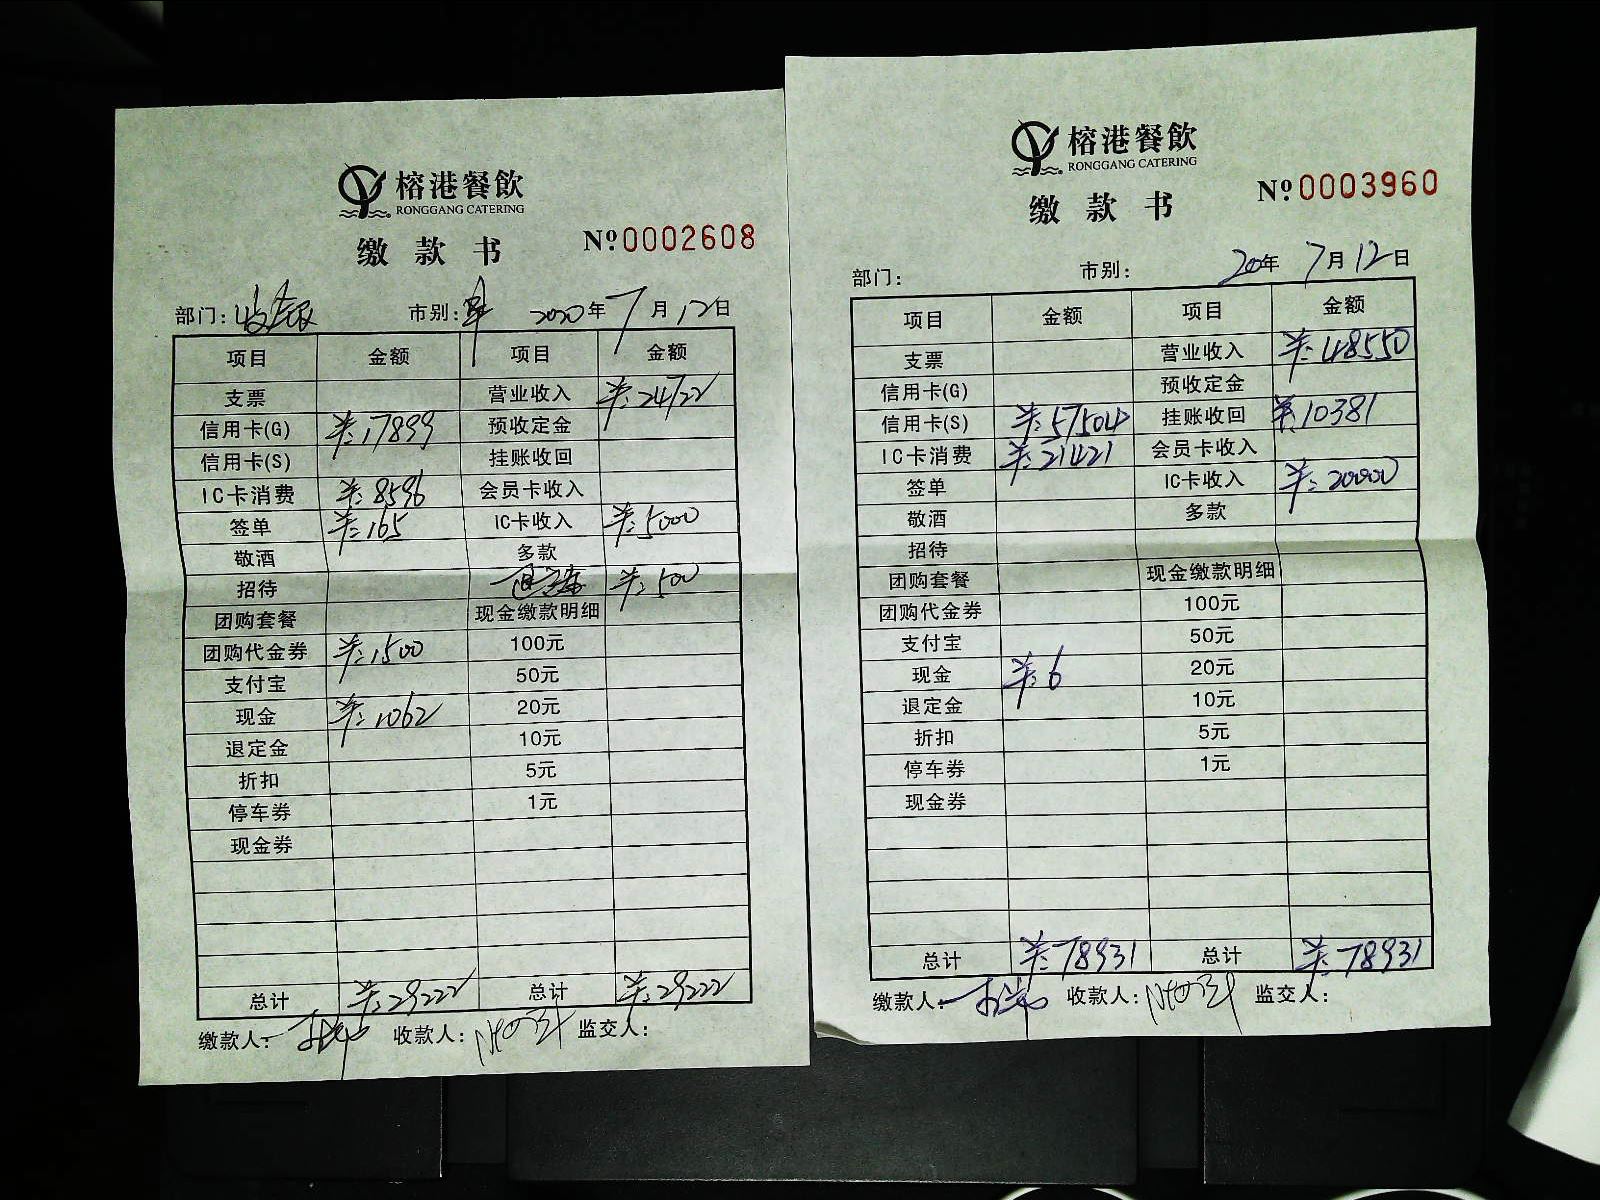 榕港餐飲
RONGGANG CATERING
缴款书
Nº0002608
部门:收银 市别:早 2020年7月12日
项目 金额 项目 金额
支票 营业收入 ¥:24722
信用卡(G) ¥:17899 预收定金
信用卡(S) 挂账收回
IC卡消费 ¥:8596 会员卡收入
签单 ¥:165 IC卡收入 ¥:5000
敬酒 多款
招待 ¥:500
团购套餐 现金缴款明细
团购代金券 ¥:1500 100元
支付宝 50元
现金 ¥:1062 20元
退定金 10元
折扣 5元
停车券 1元
现金券
总计 ¥:29222 总计 ¥:29222
缴款人: 收款人: 监交人:
榕港餐飲
RONGGANG CATERING
缴款书
Nº0003960
部门: 市别: 20年7月12日
项目 金额 项目 金额
支票 营业收入 ¥:48550
信用卡(G) 预收定金
信用卡(S) ¥:57504 挂账收回 ¥:10381
IC卡消费 ¥:21421 会员卡收入
签单 IC卡收入 ¥:20000
敬酒 多款
招待
团购套餐 现金缴款明细
团购代金券 100元
支付宝 50元
现金 ¥:6 20元
退定金 10元
折扣 5元
停车券 1元
现金券
总计 ¥:78931 总计 ¥:78931
缴款人: 收款人: 监交人: